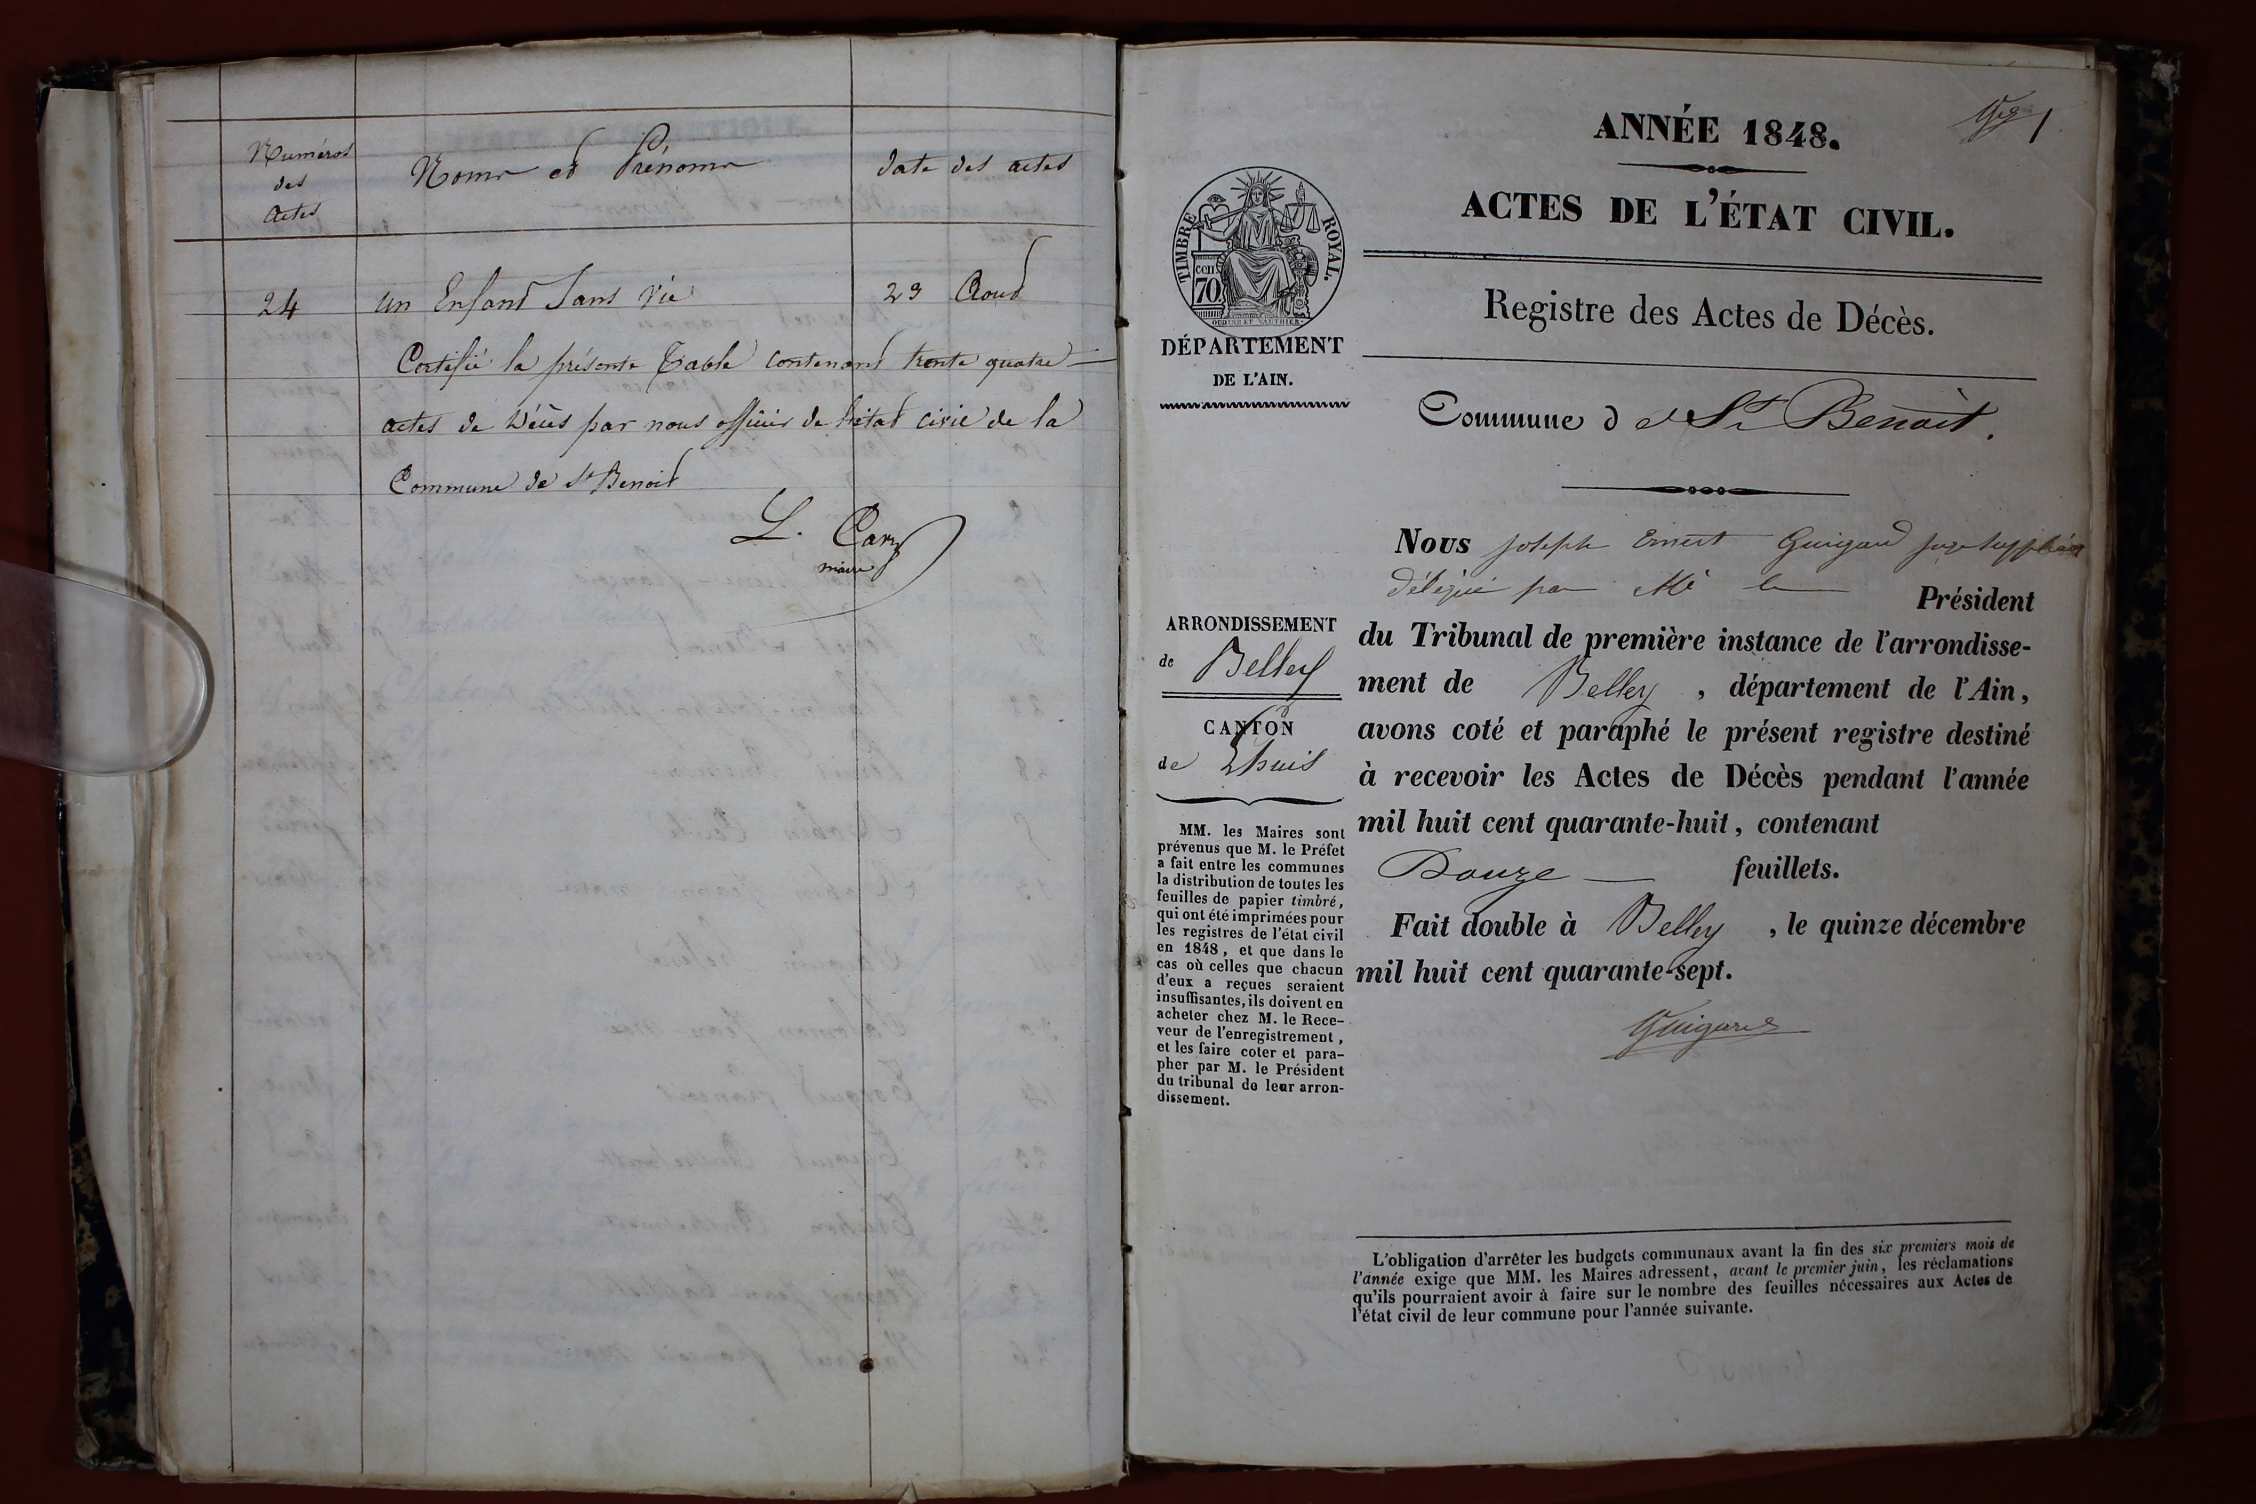 Numéros
des
Actes
Noms et Prénoms
date des actes
24 un Enfant Sans vie 29 Aout
Certifié la présente Table contenant trente quatre
actes de Décès par nous officier de l'état civil de la
Commune de St Benoit
L. Cary
maire
1
ANNÉE 1848.
ACTES DE L'ÉTAT CIVIL.
Registre des Actes de Décès.
Commune d e St Benoit.
TIMBRE ROYAL.
cen
70.
DÉPARTEMENT
DE L'AIN.
ARRONDISSEMENT
de Belley
CANTON
de Lhuis
MM. les Maires sont
prévenus que M. le Préfet
a fait entre les communes
la distribution de toutes les
feuilles de papier timbré,
qui ont été imprimées pour
les registres de l'état civil
en 1848, et que dans le
cas où celles que chacun
d'eux a reçues seraient
insuffisantes, ils doivent en
acheter chez M. le Rece-
veur de l'enregistrement,
et les faire coter et para-
pher par M. le Président
du tribunal de leur arron-
dissement.
Nous joseph Ernest Guigard juge suppléant
délégué par Mr le Président
du Tribunal de première instance de l'arrondisse-
ment de Belley, département de l'Ain,
avons coté et paraphé le présent registre destiné
à recevoir les Actes de Décès pendant l'année
mil huit cent quarante-huit, contenant
Douze feuillets.
Fait double à Belley, le quinze décembre
mil huit cent quarante-sept.
Guigard
L'obligation d'arrêter les budgets communaux avant la fin des six premiers mois de
l'année exige que MM. les Maires adressent, avant le premier juin, les réclamations
qu'ils pourraient avoir à faire sur le nombre des feuilles nécessaires aux Actes de
l'état civil de leur commune pour l'année suivante.